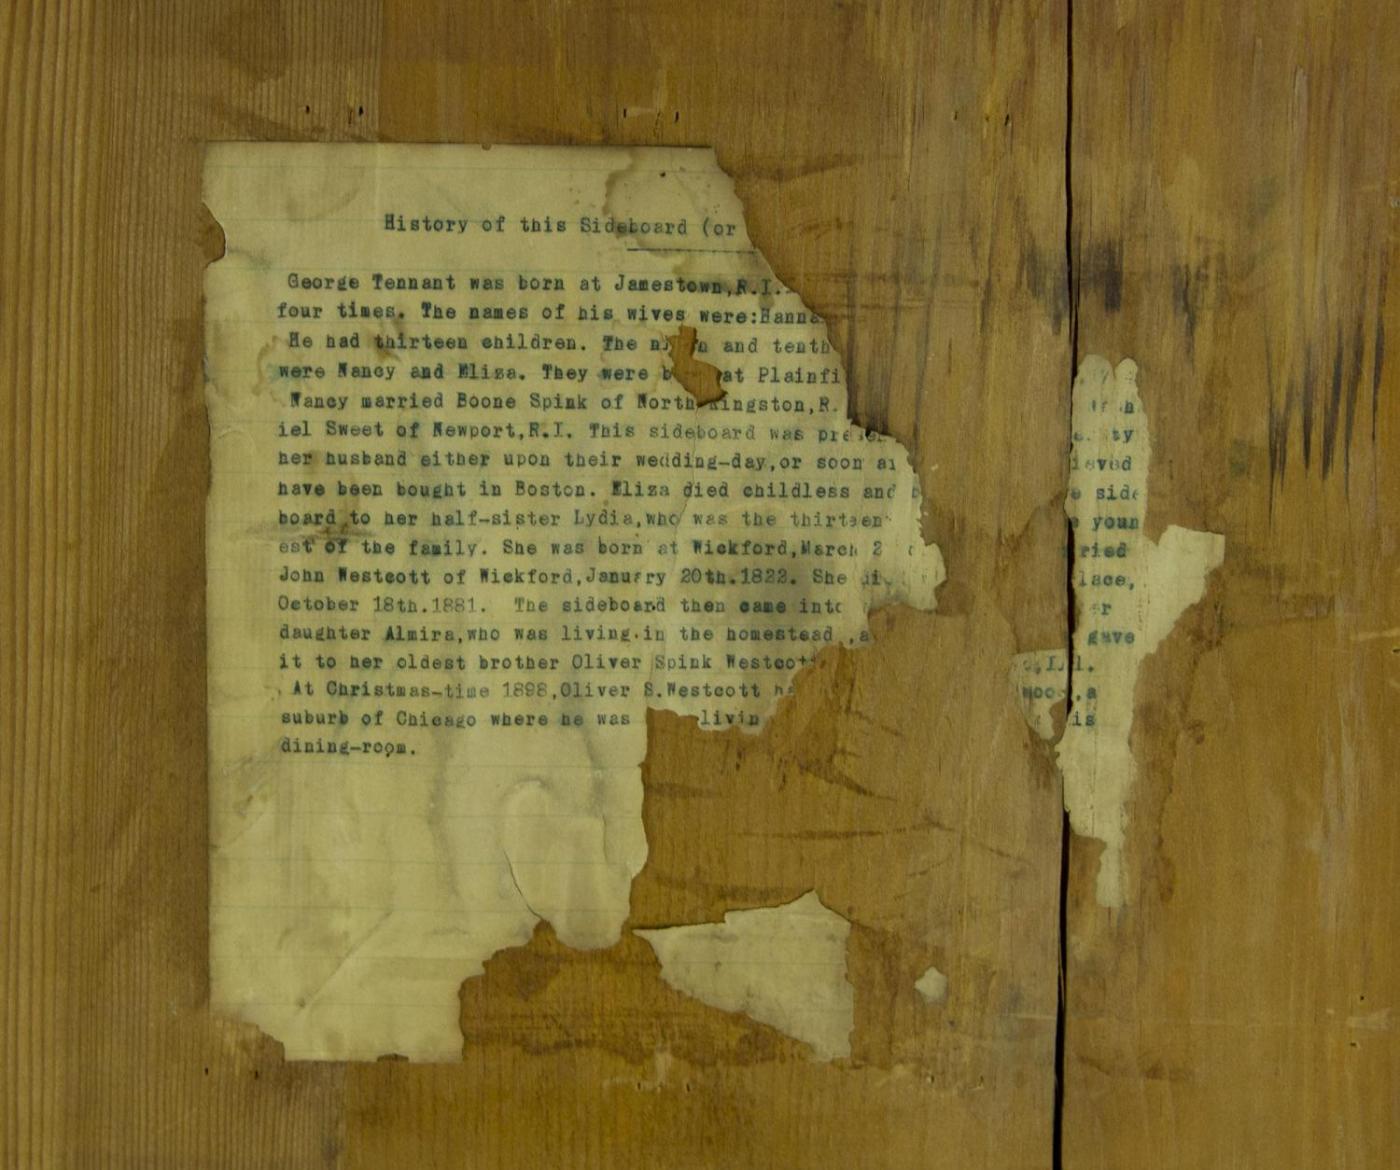 History of this Sideboard (or
George Tennant was born at Jamestown,R.I.
four times. The names of his wives were:Hanna
He had thirteen children. The and tenth
were Nancy and Eliza. They were at Plainfi
Nancy married Boone Spink of North Kingston,R.
iel Sweet of Newport,R.I. This sideboard was ty
her husband either upon their wedding-day,or soon ieved
have been bought in Boston. Eliza died childless and side
board to her half-sister Lydia,who was the thirteen youn
est of the family. She was born at Wickford,March 2 ried
John Westcott of Wickford,January 20th.1822. She lace,
October 18th.1881. The sideboard then came into
daughter Almira,who was living in the homestead , gave
it to her oldest brother Oliver Spink Westcott
At Christmas-time 1898,Oliver S.Westcott ,a
suburb of Chicago where he was livin is
dining-room.